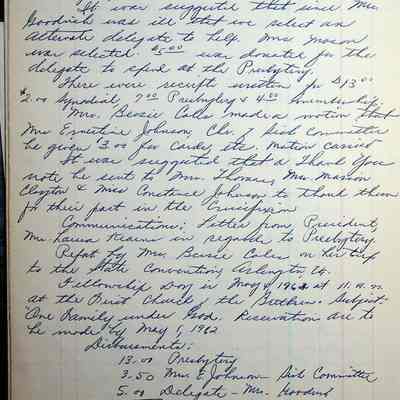 It was suggested that since Mrs.
Goodrich was ill that we select an
Alternate delegate to help. Mrs Mason
was selected. $5.00 was donated for the
delegate to spend at the Presbytery.
There were receipts written for $13.00
$2.00 Synodical, 7.00 Presbytery & 4.00 membership.
Mrs. Bessie Coles made a motion that
Mrs Ernestine Johnson, Chr. of Sick Committee
be given 3.00 for cards, etc. Motion carried
It was suggested that a Thank You
note be sent to Mrs. Thomas, Mrs. Marion
Clayton & Miss Constance Johnson to thank them
for their part in the Crucifixion
Communications: Letter from President,
Mrs Kearns in regards to Presbytery.
by Mrs. Bessie Coles on her trip
to the State Convention, Arlington, Va.
Fellowship Day in May 4, 1962 at 11 a.m.
at the First Church of the Brethren. Subject
"One Family under God. Reservation are to
be made by May 1, 1962
Disbursements:
13.00 Presbytery
3.50 Mrs E. Johnson - Sick Committee
5.00 Delegate - Mrs.